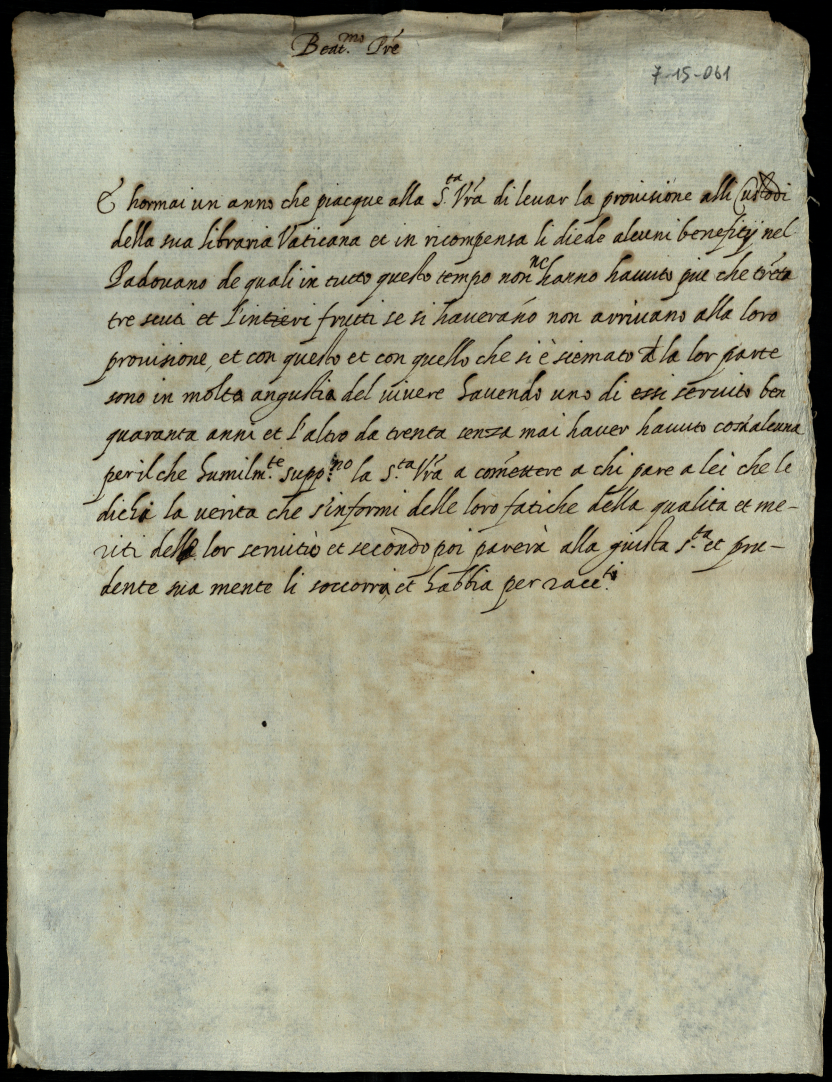 Beat.mo Pre
7-15-061
È hormai un anno che piacque alla S.ta Vra di levar la provisione alli Custodi
della sua libraria Vaticana et in ricompensa li diede alcuni benefitij nel
Padovano de quali in tutto questo tempo non ne hanno havuto piu che treta
tre scuti et l'intieri frutti se si haverano non arrivano alla loro
provisione, et con questo et con quello che si è sciemato da la lor parte
sono in molta angustia del vivere havendo uno di essi servito ben
quaranta anni et l'altro da trenta senza mai haver havuto cosa alcuna
per il che humilm.te supp.no la S.ta Vra a comettere a chi pare a lei che le
dichi la verita che s'informi delle loro fatiche della qualita et me-
riti della lor servitù et secondo poi parerà alla giusta S.ta et pru-
dente sua mente li soccorri, et habbia per racc.ti